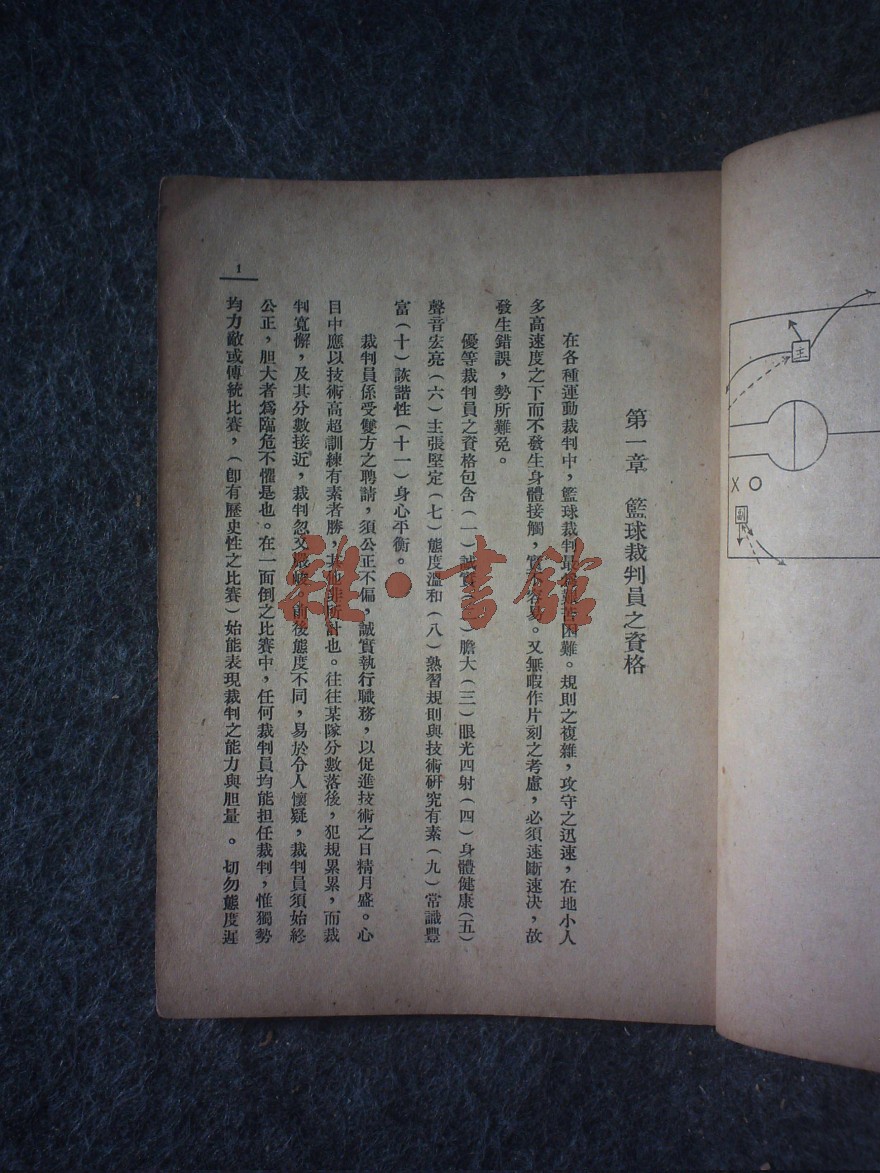 第一章　籃球裁判員之資格
在各種運動裁判中，籃球裁判最為艱苦困難。規則之複雜，攻守之迅速，在地小人
多高速度之下而不發生身體接觸，實不容易。又無暇作片刻之考慮，必須速斷速決，故
發生錯誤，勢所難免。
優等裁判員之資格包含（一）誠實（二）膽大（三）眼光四射（四）身體健康（五）
聲音宏亮（六）主張堅定（七）態度溫和（八）熟習規則與技術研究有素（九）常識豐
富（十）詼諧性（十一）身心平衡。
裁判員係受雙方之聘請，須公正不偏，誠實執行職務，以促進技術之日精月盛。心
目中應以技術高超訓練有素者勝，其他非所計也。往往某隊分數落後，犯規累累，而裁
判寬懈，及其分數接近，裁判忽又嚴峻，前後態度不同，易於令人懷疑，裁判員須始終
公正，胆大者為臨危不懼是也。在一面倒之比賽中，任何裁判員均能担任裁判，惟獨勢
均力敵或傳統比賽，（卽有歷史性之比賽）始能表現裁判之能力與胆量。切勿態度遲
1
主
副
X O
雜·書館